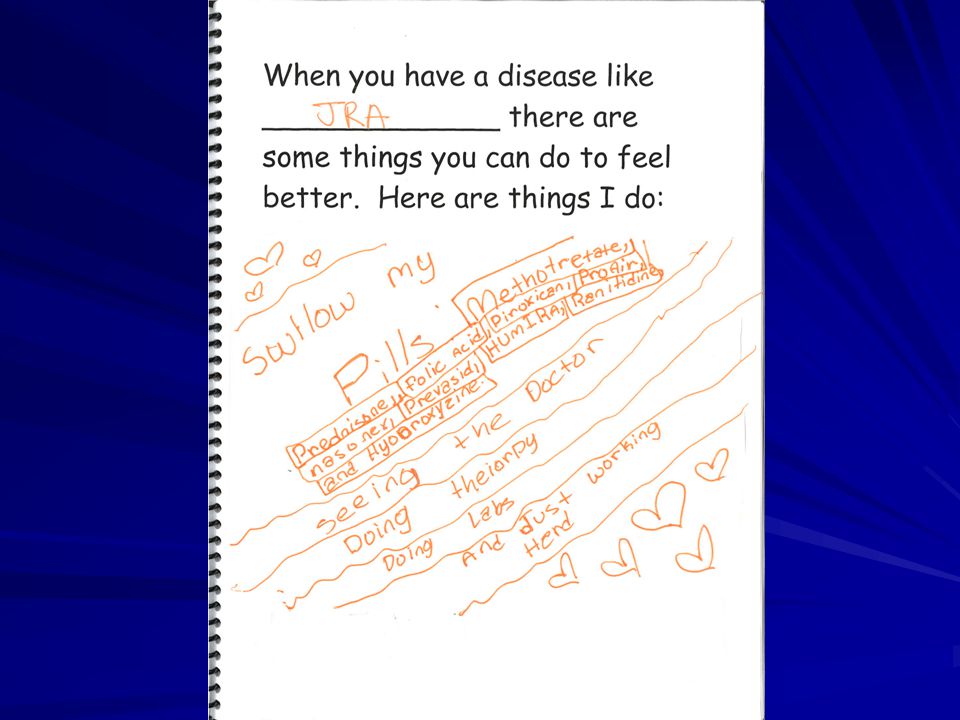 When you have a disease like
JRA there are
some things you can do to feel
better. Here are things I do:
Swllow my
Pills: Methotretate,
Prednisone, folic Acid, Piroxican, ProAir,
nasonex, Prevasid, HUMIRA, Ranitidine,
and Hydroxyzine.
seeing the Doctor
Doing theiorpy
Doing Labs
And Just working
Herd